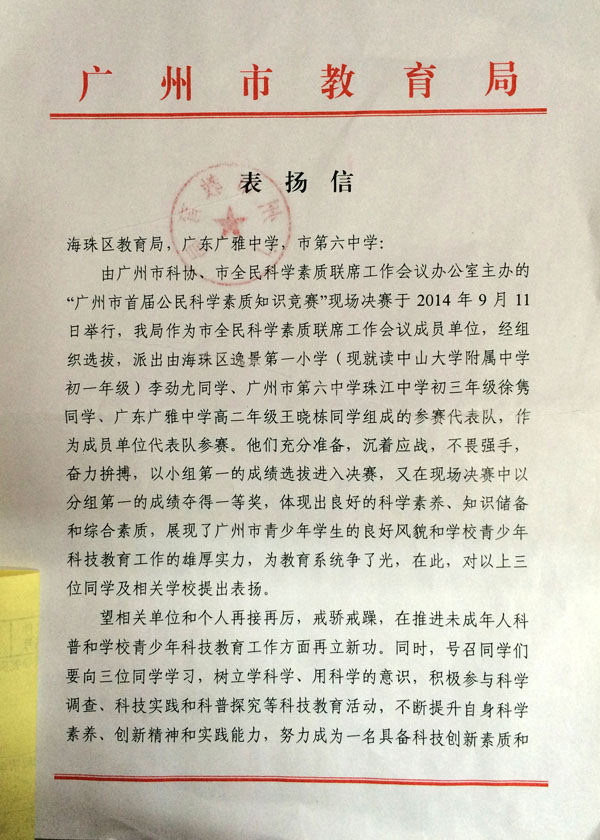 广州市教育局
表扬信
海珠区教育局，广东广雅中学，市第六中学：
由广州市科协、市全民科学素质联席工作会议办公室主办的
“广州市首届公民科学素质知识竞赛”现场决赛于 2014 年 9 月 11
日举行，我局作为市全民科学素质联席工作会议成员单位，经组
织选拔，派出由海珠区逸景第一小学（现就读中山大学附属中学
初一年级）李劲尤同学、广州市第六中学珠江中学初三年级徐隽
同学、广东广雅中学高二年级王晓栋同学组成的参赛代表队，作
为成员单位代表队参赛。他们充分准备，沉着应战，不畏强手，
奋力拚搏，以小组第一的成绩选拔进入决赛，又在现场决赛中以
分组第一的成绩夺得一等奖，体现出良好的科学素养、知识储备
和综合素质，展现了广州市青少年学生的良好风貌和学校青少年
科技教育工作的雄厚实力，为教育系统争了光，在此，对以上三
位同学及相关学校提出表扬。
望相关单位和个人再接再厉，戒骄戒躁，在推进未成年人科
普和学校青少年科技教育工作方面再立新功。同时，号召同学们
要向三位同学学习，树立学科学、用科学的意识，积极参与科学
调查、科技实践和科普探究等科技教育活动，不断提升自身科学
素养、创新精神和实践能力，努力成为一名具备科技创新素质和